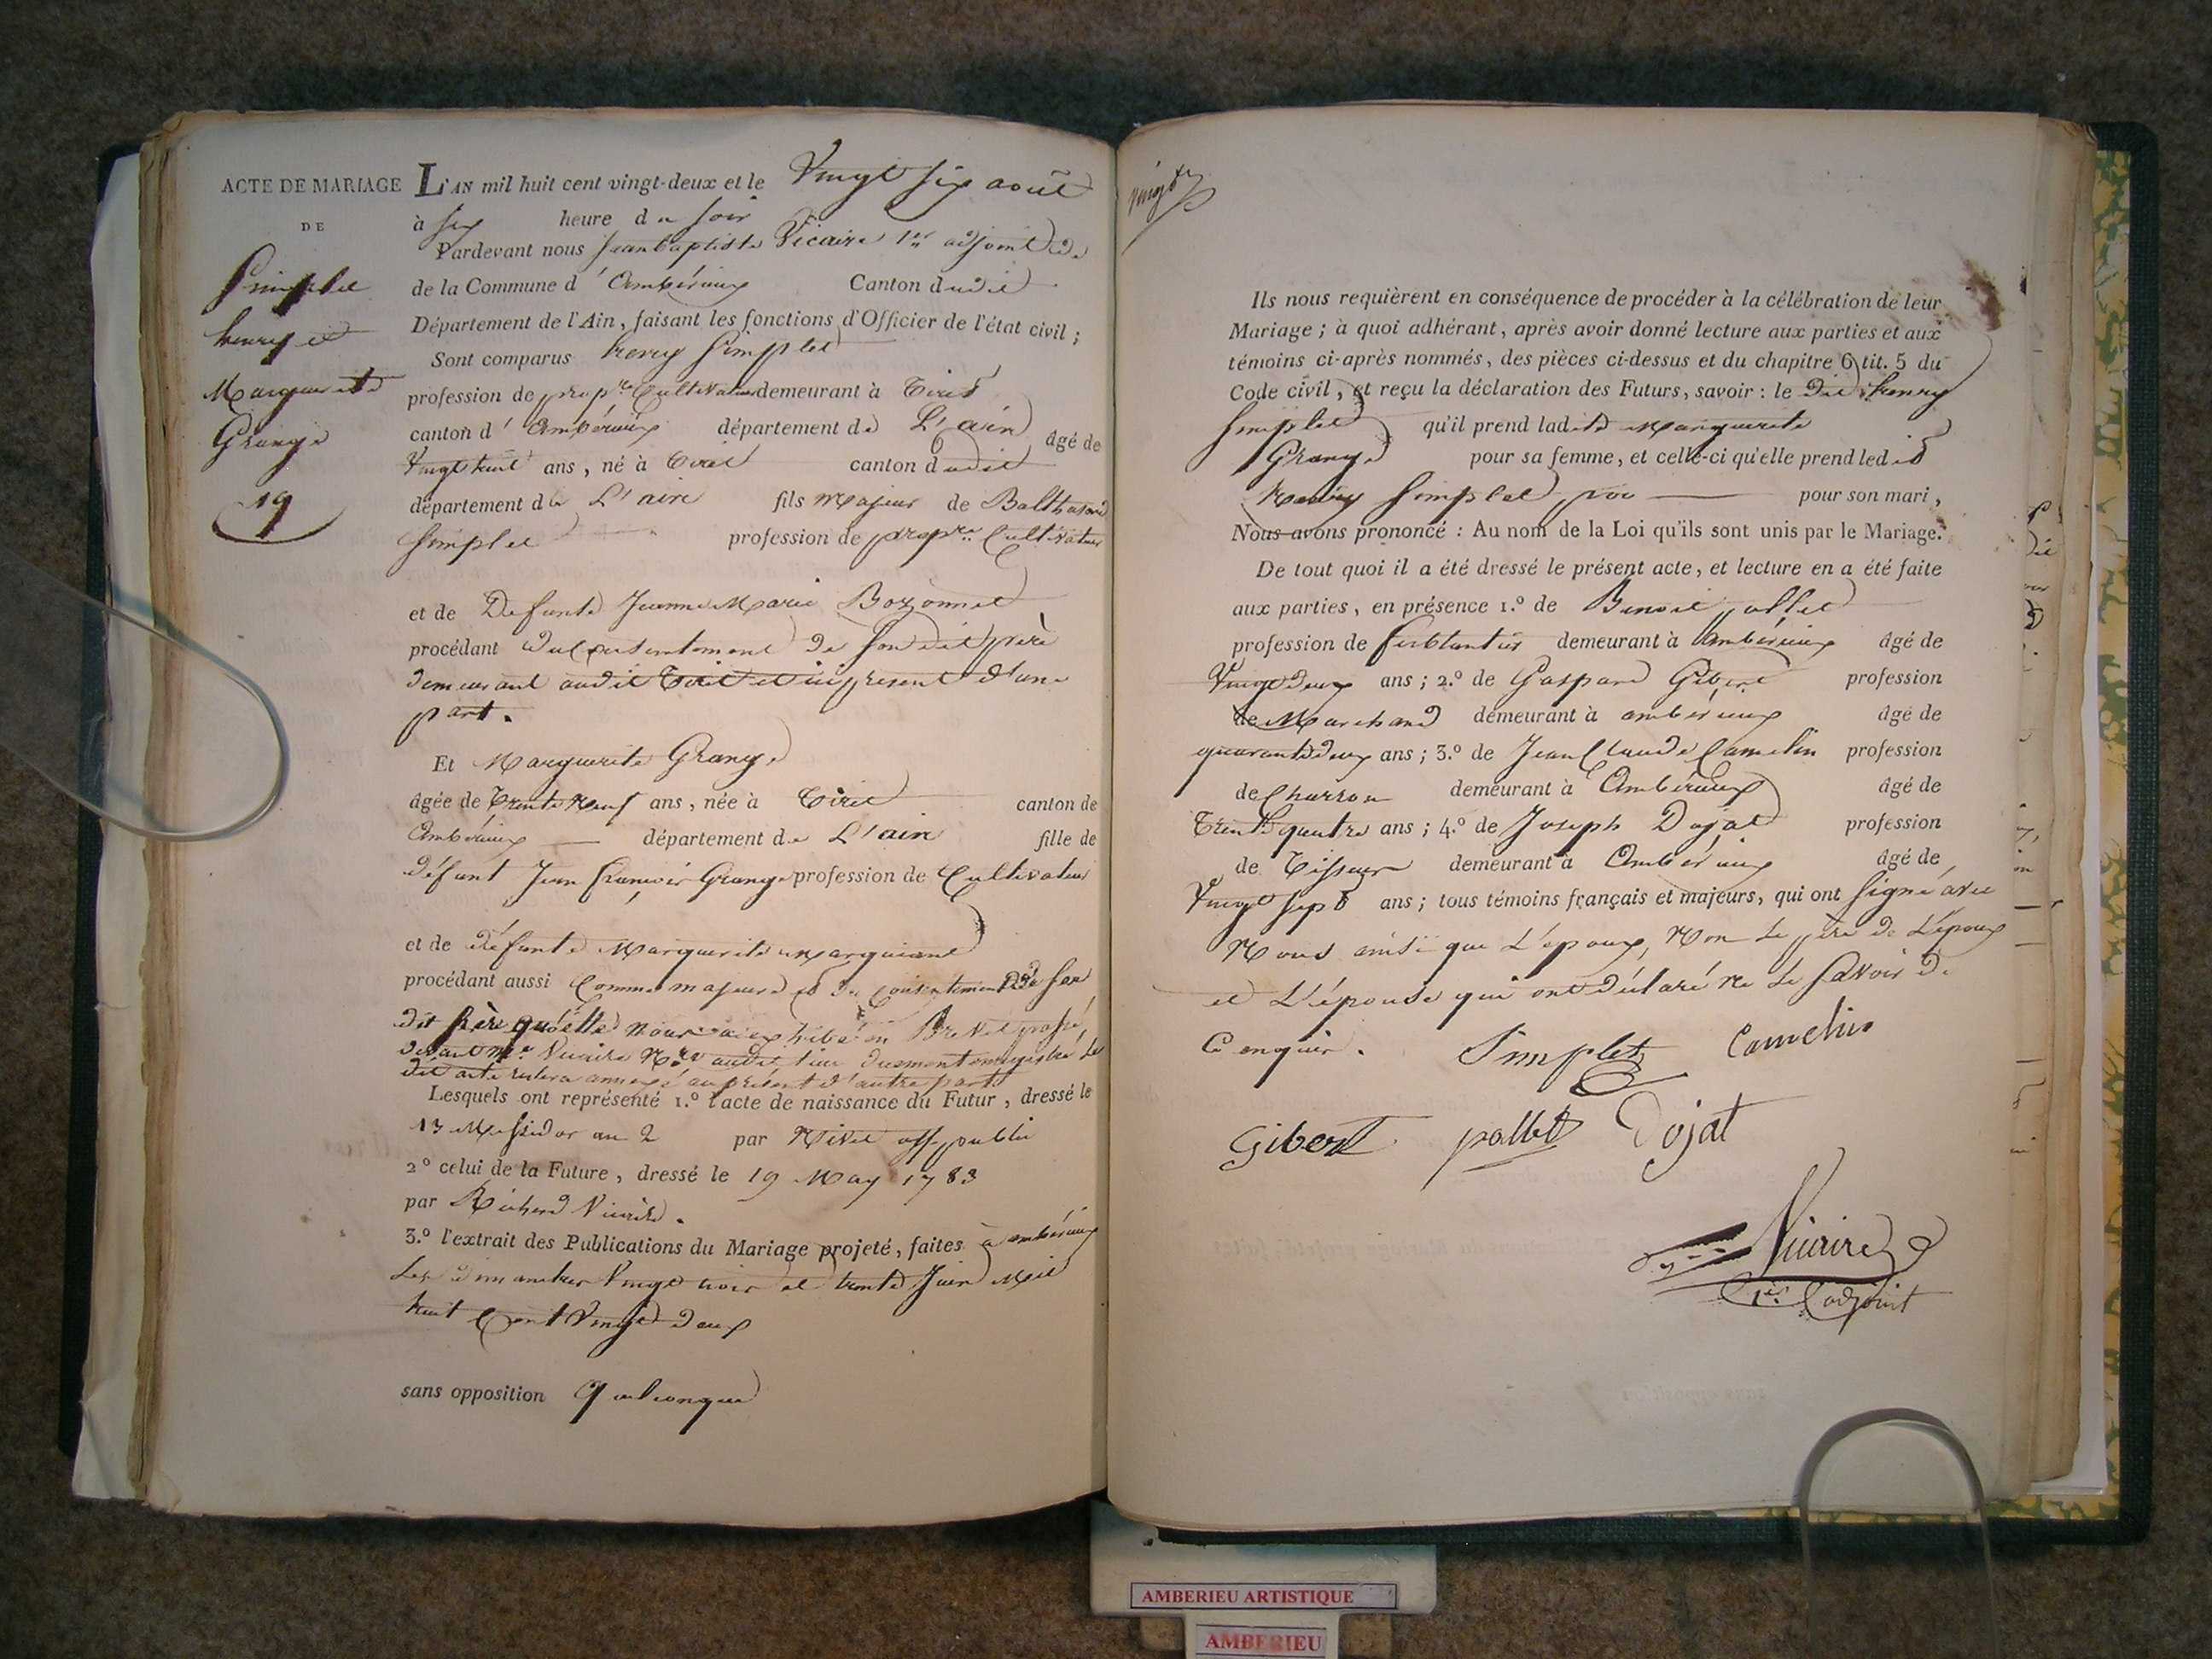 ACTE DE MARIAGE
DE
Simplet
henry et
Marguerite
Grange
19
L'AN mil huit cent vingt-deux et le Vingt six août
à six heure du soir
Pardevant nous Jean baptiste Vicaire 1er adjoint
de la Commune d'Ambérieux Canton dudit
Département de l'Ain, faisant les fonctions d'Officier de l'état civil ;
Sont comparus henry Simplet
profession de propre Cultivateur demeurant à
canton d'Ambérieux département de L'ain âgé de
Vingt huit ans, né à canton dudit
département de L'ain fils Majeur de Balthazard
Simplet profession de propre Cultivateur
et de Defunte Jeanne Marie Bozonnet
procédant du Consentement de son dit père
demeurant audit et ici present d'une
part.
Et Marguerite Grange
âgée de trente Neuf ans, née à canton de
Ambérieux département de L'ain fille de
défunt Jean françois Grange profession de Cultivateur
et de défunte Marguerite
procédant aussi Comme majeure et du Consentement de son
dit frère qu'elle nous a exhibé en Brevet passé
devant Me Vicaire Nre audit lieu duement enregistré le
dit acte restera annexé au présent d'autre part
Lesquels ont représenté 1.º l'acte de naissance du Futur, dressé le
13 Messidor an 2 par Nivet off. public
2º celui de la Future, dressé le 19 May 1783
par Richard Vicaire.
3.º l'extrait des Publications du Mariage projeté, faites à ambérieux
Les dimanches Vingt trois et trente Juin Mil
huit Cent Vingt deux
sans opposition quelconque
Ils nous requièrent en conséquence de procéder à la célébration de leur
Mariage ; à quoi adhérant, après avoir donné lecture aux parties et aux
témoins ci-après nommés, des pièces ci-dessus et du chapitre 6 tit. 5 du
Code civil, et reçu la déclaration des Futurs, savoir : le dit henry
Simplet qu'il prend ladite Marguerite
Grange pour sa femme, et celle-ci qu'elle prend ledit
henry Simplet pour son mari,
Nous avons prononcé : Au nom de la Loi qu'ils sont unis par le Mariage.
De tout quoi il a été dressé le présent acte, et lecture en a été faite
aux parties, en présence 1.º de Benoit pollet
profession de ferblantier demeurant à Ambérieux âgé de
Vingt deux ans ; 2.º de Gaspard Gibert profession
de Marchand demeurant à ambérieux âgé de
quarante deux ans ; 3.º de Jean Claude Camelin profession
de Charron demeurant à Ambérieux âgé de
Trente quatre ans ; 4.º de Joseph Dojat profession
de Tisseur demeurant à Ambérieux âgé de
Vingt sept ans ; tous témoins français et majeurs, qui ont Signé avec
Nous ainsi que L'epoux, Non Le père de L'époux
et L'épouse qui ont déclaré ne Le savoir de
Ce enquis.
Simplet Camelin
Gibert pollet Dojat
Vicaire
1er adjoint
AMBERIEU ARTISTIQUE
AMBERIEU